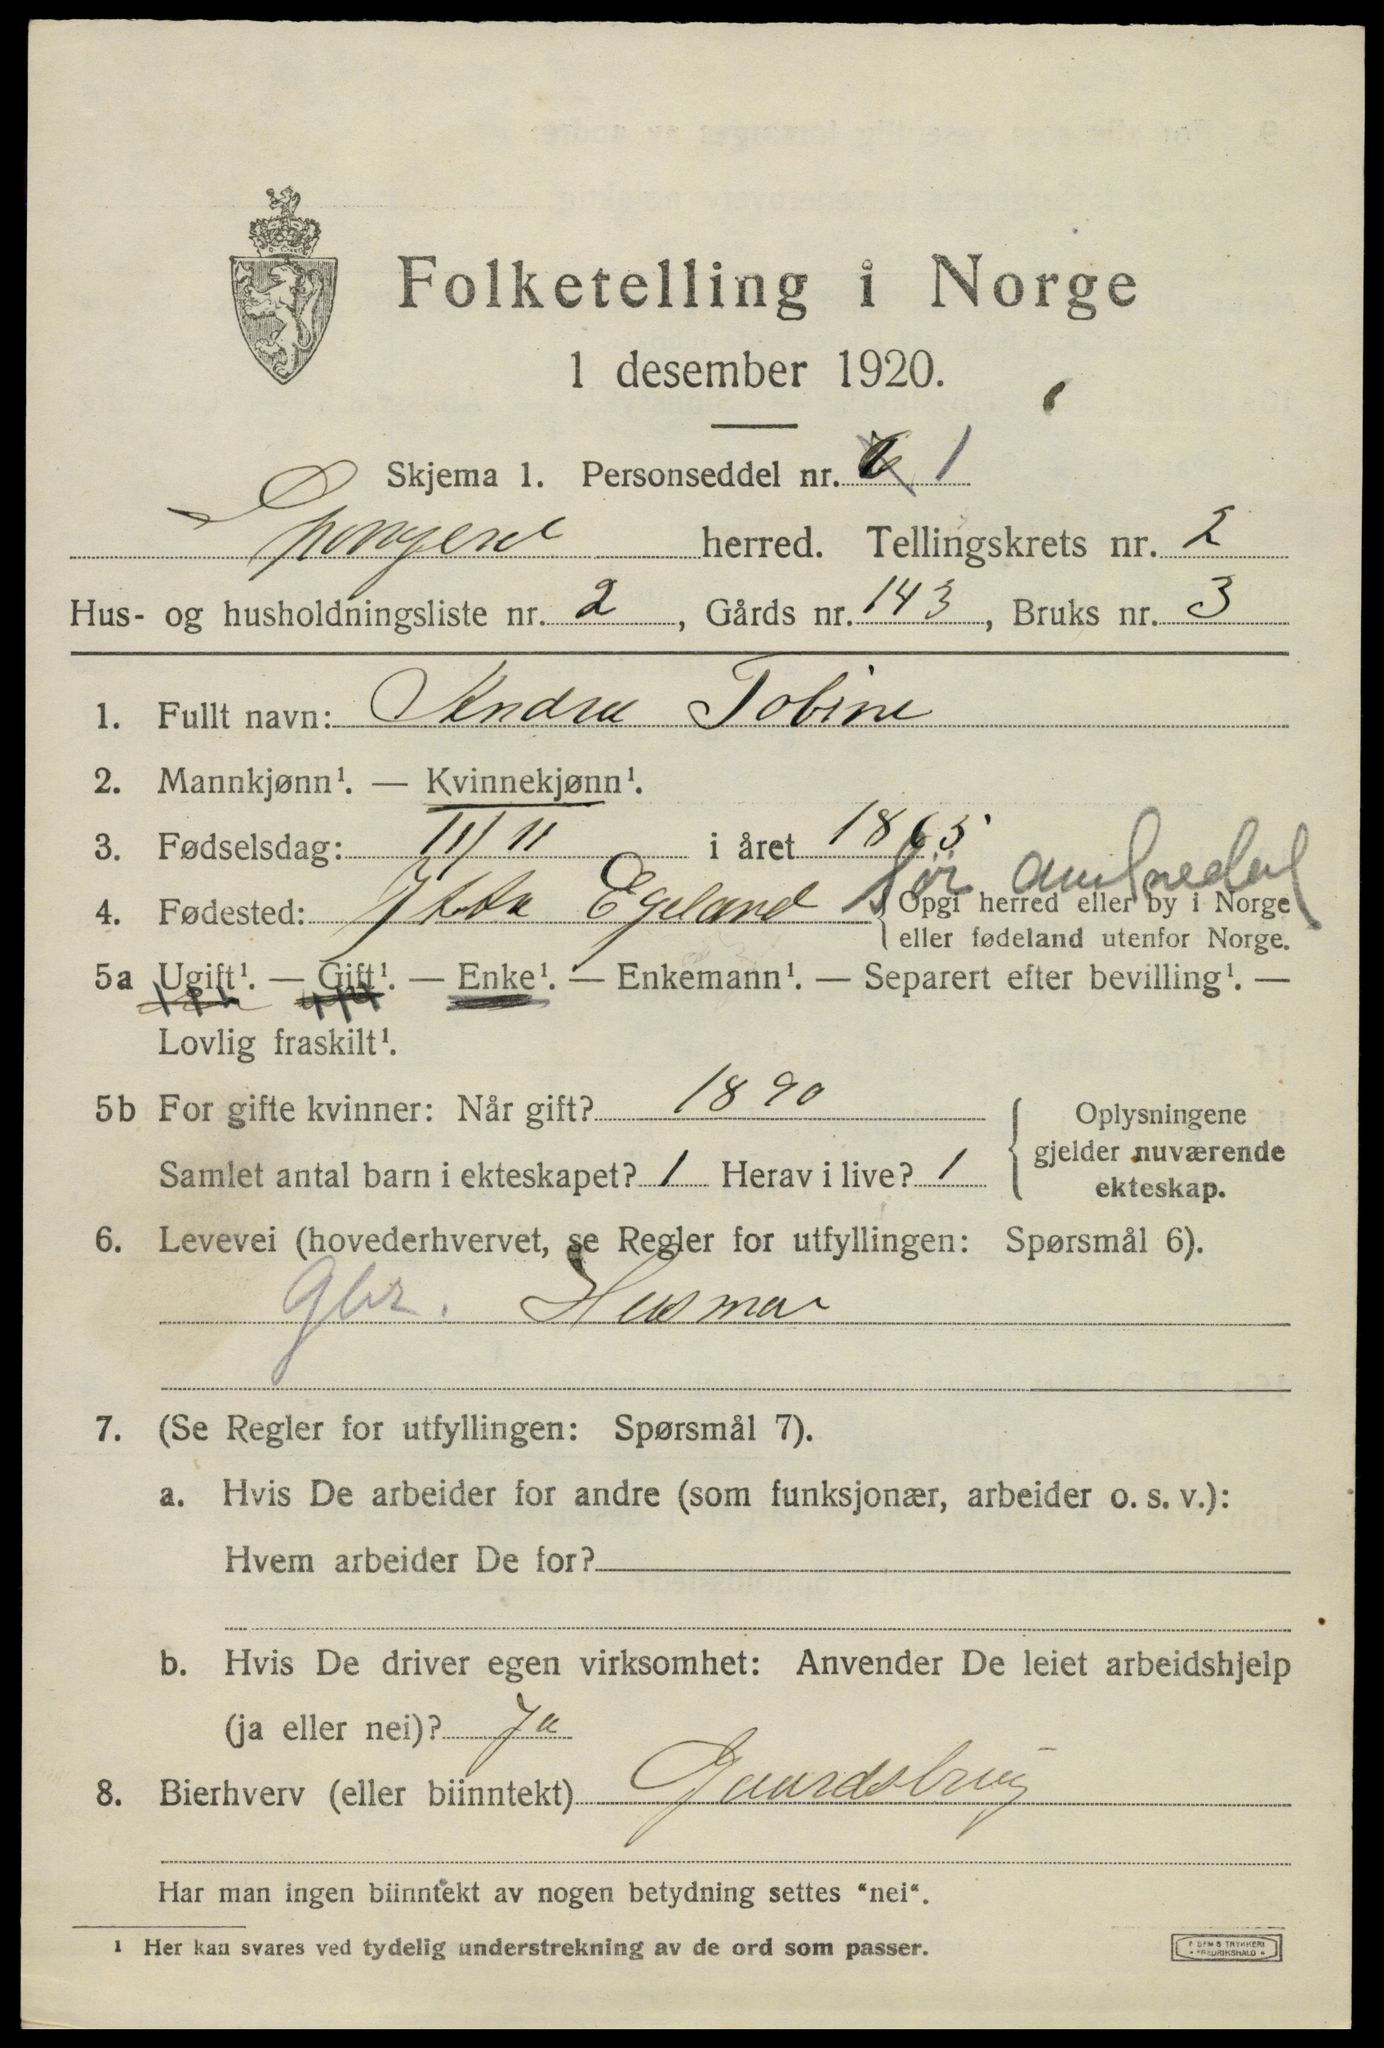 Folketelling i Norge
1 desember 1920.
Skjema 1. Personseddel nr. 1
herred. Tellingskrets nr. 2
Hus- og husholdningsliste nr. 2, Gårds nr. 143, Bruks nr. 3
1. Fullt navn: Andrea Tobine
2. Mannkjønn¹. — Kvinnekjønn¹.
3. Fødselsdag: 11/11 i året 1865
4. Fødested: Egeland Sør Opgi herred eller by i Norge
eller fødeland utenfor Norge.
5a Ugift¹. — Gift¹. — Enke¹. — Enkemann¹. — Separert efter bevilling¹. —
Lovlig fraskilt¹.
5b For gifte kvinner: Når gift? 1890
Samlet antal barn i ekteskapet? 1 Herav i live? 1
Oplysningene
gjelder nuværende
ekteskap.
6. Levevei (hovederhvervet, se Regler for utfyllingen: Spørsmål 6).
Gbr. Husmor
7. (Se Regler for utfyllingen: Spørsmål 7).
a. Hvis De arbeider for andre (som funksjonær, arbeider o. s. v.):
Hvem arbeider De for?
b. Hvis De driver egen virksomhet: Anvender De leiet arbeidshjelp
(ja eller nei)? Ja
8. Bierhverv (eller biinntekt) Gaardsbrug
Har man ingen biinntekt av nogen betydning settes "nei".
¹ Her kan svares ved tydelig understrekning av de ord som passer.